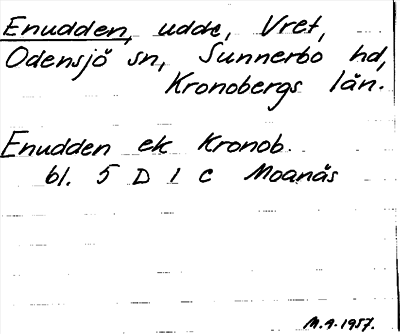 Enudden, udde, Vret,
Odensjö sn, Sunnerbo hd,
Kronobergs län.
Enudden ek Kronob.
bl. 5 D 1 c Moanäs
M.A. 1957.